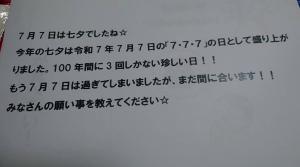 7月7日は七夕でしたね☆
今年の七夕は令和7年7月7日の「7・7・7」の日として盛り上が
りました。100年間に3回しかない珍しい日！！
もう7月7日は過ぎてしまいましたが、まだ間に合います！！
みなさんの願い事を教えてください☆